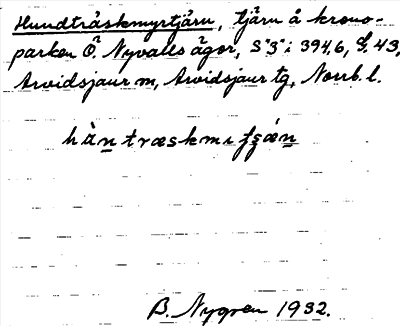 Hundträskmyrtjärn, tjärn å krono-
parken Ö. Nyvalls ägor, S"3": 394,6, G. 43,
Arvidsjaur m, Arvidsjaur tg, Norrb. l.
hàn træskmı
B. Nygren 1932.